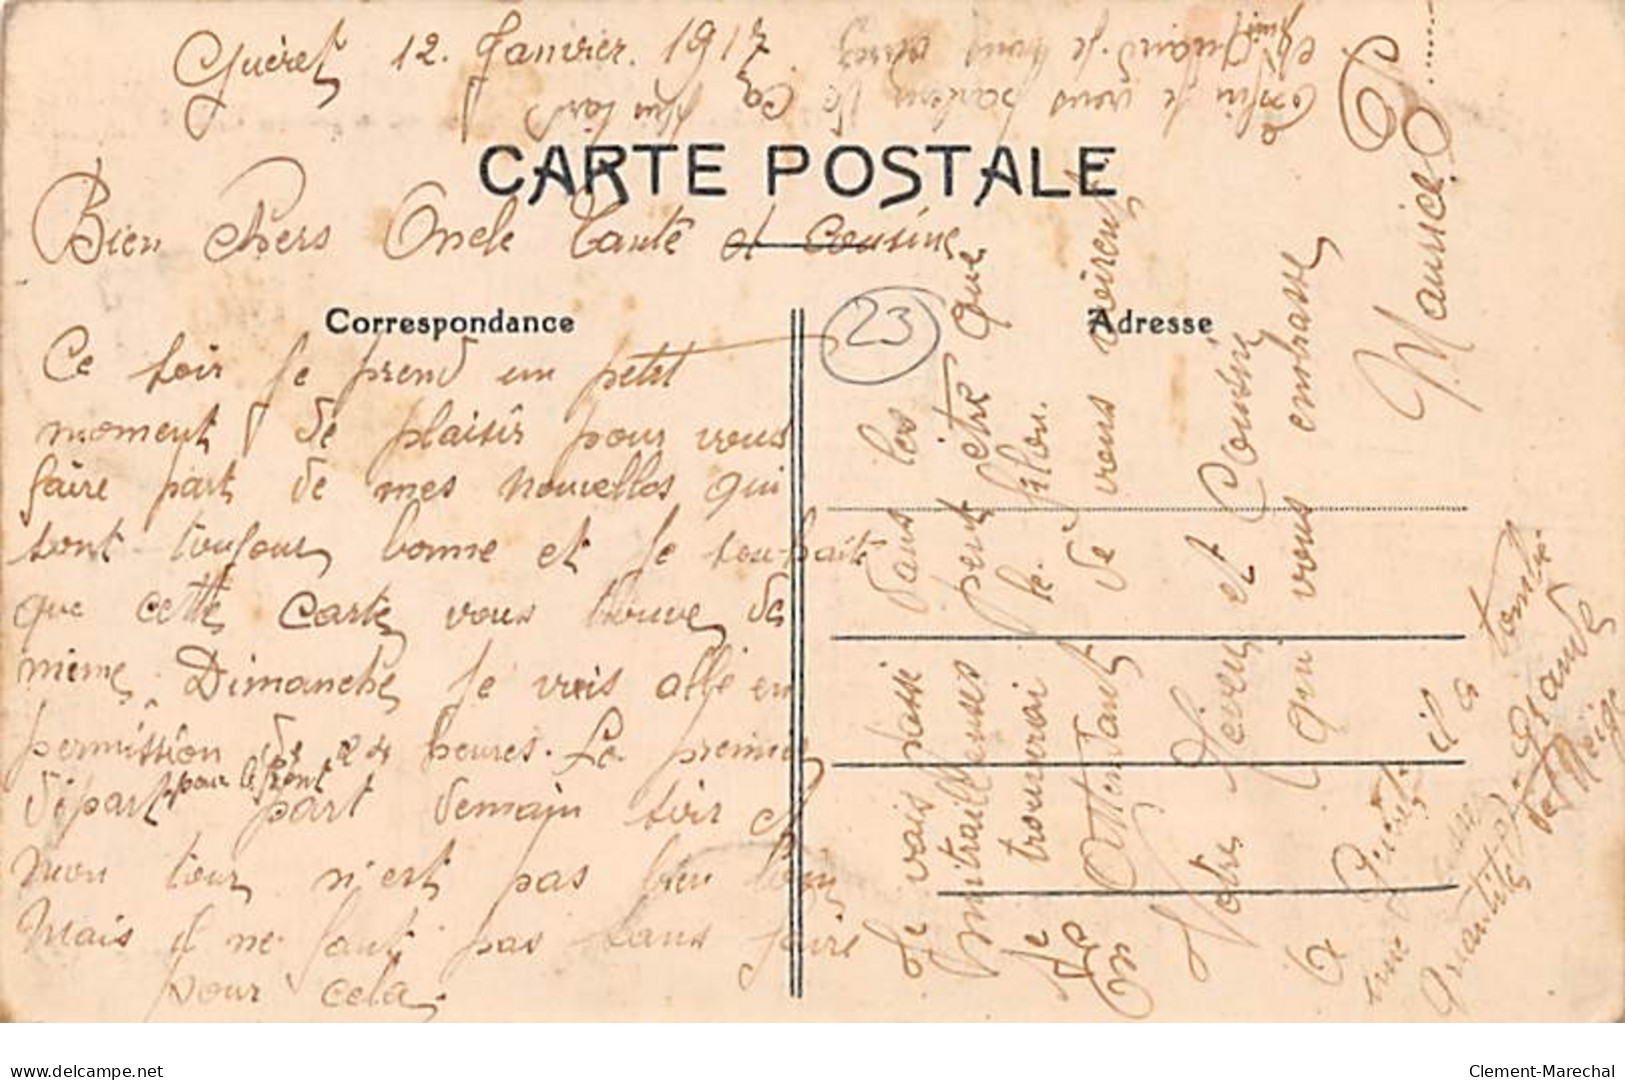 Guéret 12. Janvier. 1917
CARTE POSTALE
Bien chers Oncle Tante et Cousine
Correspondance
Ce soir je prend un petit
moment de plaisir pour vous
faire part de mes nouvelles qui
sont toujours bonne et je souhaite
que cette carte vous trouve de
même, Dimanche je vais allé en
permission de 24 heures. Le premier
départ pour le front part demain soir et
mon tour n'est pas bien loin
Mais il ne faut pas sans faire
pour cela.
23
Adresse
Je vais passé dans les
mitrailleuses peut être que
je trouverai le filon.
En Attendant de vous
Votre Neveu et Cousin
qui vous embrasse
Maurice
a Guéret il a tombé
une quantité
grande
de Neige
Enfin je vous de Ca plus tard
delcampe.net
Clement-Marechal